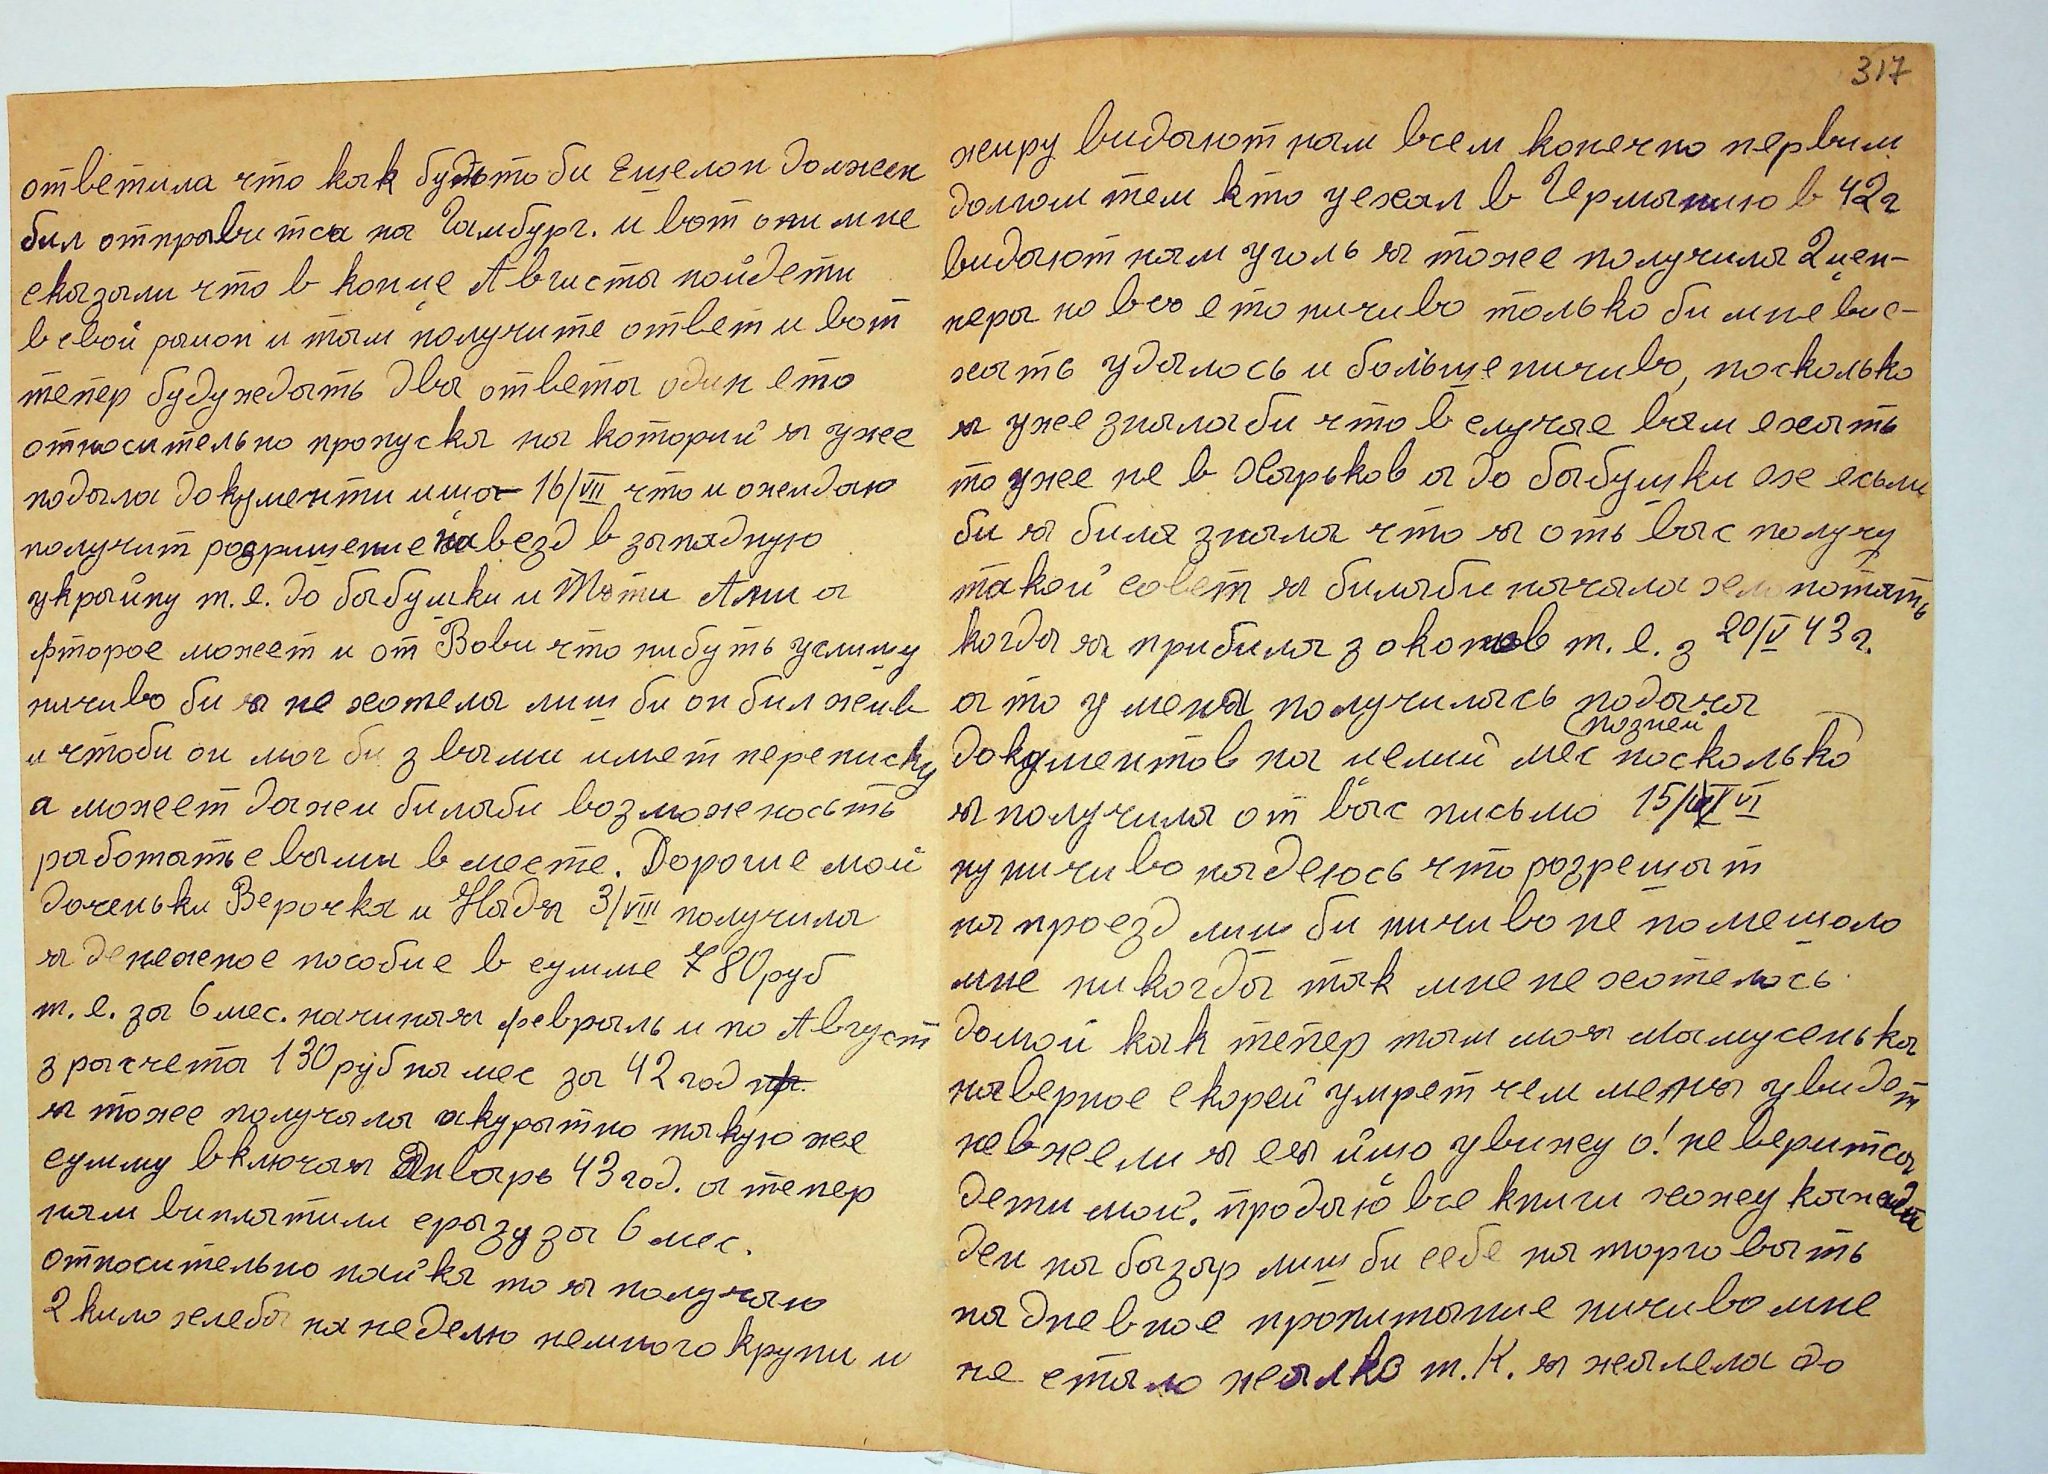 ответила что как будьто би ешелон должен
бил отправитса на Гамбург. и вот они мне
сказали что в конце Августа пойдети
в свой район и там получите ответ и вот
тепер буду ждать два ответа один ето
относительно пропуска на который я уже
подала документи ища 16/VII что и ожидаю
получит розришение на везд в западную
украйну т.е. до бабушки и Тьоти Ани а
фторое может и от Вови что нибуть услишу
ничиво би я не хотела лиш би он бил жив
и чтоби он мог би з вами имет переписку
а может даже билаби возможеность
работать с вами в месте. Дорогие мои
доченьки Верочка и Надя 3/VIII получила
я денежное пособие в сумме 780 руб
т.е. за 6 мес. начиная февраль и по Август
з расчета 130 руб на мес за 42 год
я тоже получала акуратно такую же
сумму включая Январь 43 год. а тепер
нам виплатили сразу за 6 мес.
относительно пайка то я получаю
2 кило хлеба на неделю немного крупи и
317
жиру видают нам всем конечно первим
долгом тем кто уехал в Германию в 42 г
видают нам уголь я тоже получила 2 цен-
нера но всо ето ничиво только би мне виє-
хать удалось и больше ничиво, посколько
я уже зналаби что в случае вам ехать
то уже не в Харьков а до бабушки же есьли
би я била знала что я оть вас получу
такой совет я билаби начала хлопотать
когда я прибила з окопов т.е. з 20/V 43 г.
а то у меня получилась подача
документов на целий мес позней посколько
я получила от вас письмо 15/VI
ну ничиво надеюсь что розрешат
на проезд лиш би ничиво не помешало
мне никогда так мне не хотелось
домой как тепер там моя мамусенька
наверное скорей умрет чем меня увидет
невжели я ея ищо увижу о! неверитса
дети мои. продаю все книги хожу каждий
ден на базар лиш би себе наторговать
на дневное пропитание ничиво мне
не стало жалко т.к. я жалела до